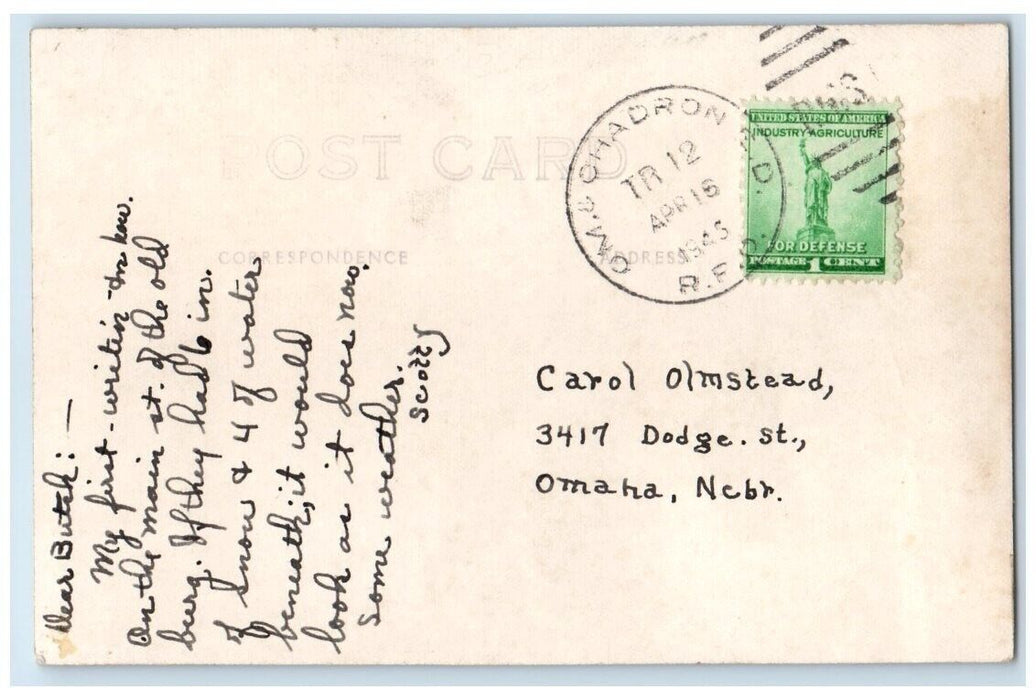 POST CARD
CORRESPONDENCE
ADDRESS
OM. & CHADRON
TR 12
APR 16
1945
R.F.D.
RMS
UNITED STATES OF AMERICA
INDUSTRY AGRICULTURE
FOR DEFENSE
POSTAGE 1 CENT
Dear Butch: —
My first - writin - in how.
On the main st. of the old
burg. If they had 6 in.
of snow & 4 of water
beneath, it would
look as it does now.
Some weather.
Scotty
Carol Olmstead,
3417 Dodge. st.,
Omaha, Nebr.